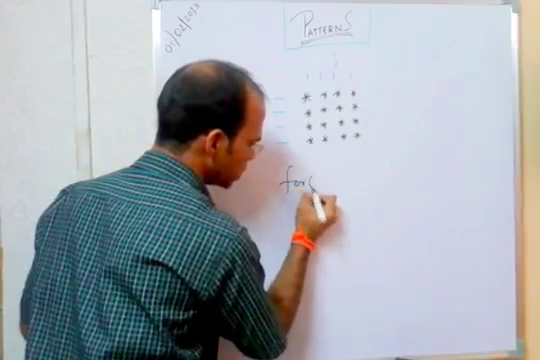 01/02/2013
PATTERNS
* * * *
* * * *
* * * *
* * * *
for(